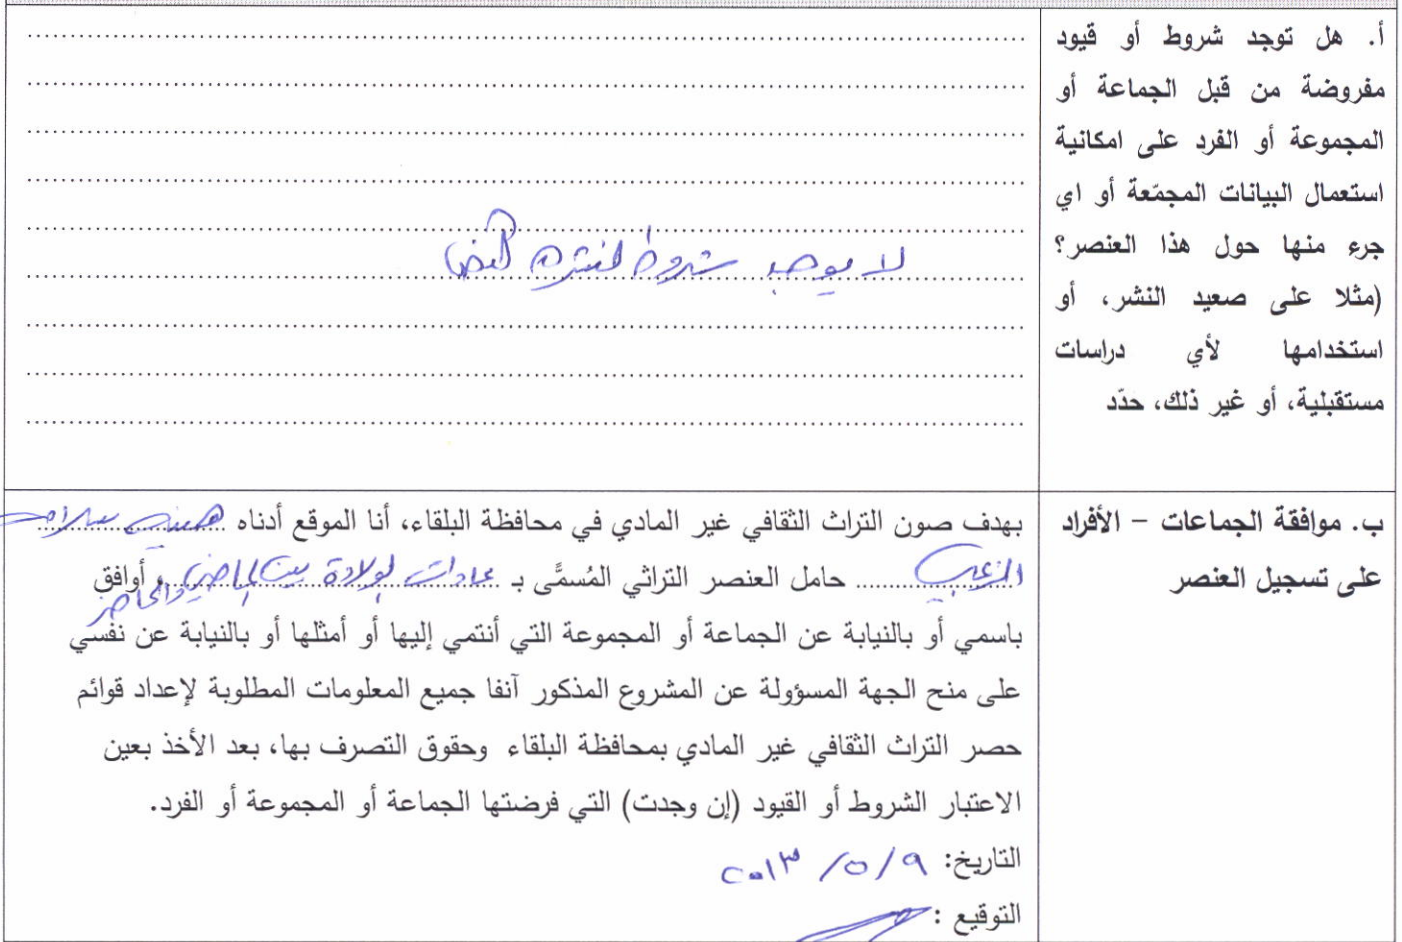 أ. هل توجد شروط أو قيود
مفروضة من قبل الجماعة أو
المجموعة أو الفرد على امكانية
استعمال البيانات المجمّعة أو اي
جزء منها حول هذا العنصر؟
(مثلا على صعيد النشر، أو
استخدامها لأي دراسات
مستقبلية، أو غير ذلك، حدّد
لا يوجد شروط لنشر هذا
ب. موافقة الجماعات – الأفراد
على تسجيل العنصر
بهدف صون التراث الثقافي غير المادي في محافظة البلقاء، أنا الموقع أدناه هيفاء سلامه
الزعبي حامل العنصر التراثي المُسمَّى بـ عادات الولادة بين الماضي والحاضر و أوافق
باسمي أو بالنيابة عن الجماعة أو المجموعة التي أنتمي إليها أو أمثلها أو بالنيابة عن نفسي
على منح الجهة المسؤولة عن المشروع المذكور آنفا جميع المعلومات المطلوبة لإعداد قوائم
حصر التراث الثقافي غير المادي بمحافظة البلقاء وحقوق التصرف بها، بعد الأخذ بعين
الاعتبار الشروط أو القيود (إن وجدت) التي فرضتها الجماعة أو المجموعة أو الفرد.
التاريخ: ٩/ ٥/ ٢٠١٣
التوقيع :